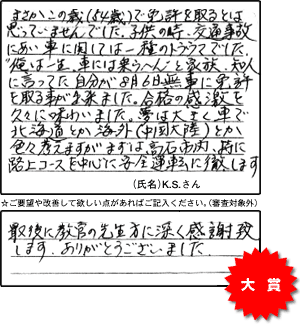 まさかこの歳(54歳)で免許を取るとは
思っていませんでした。子供の時、交通事故
にあい車に関しては一種のトラウマでした。
"俺は一生、車には乗らへん"と家族、知人
に言ってた自分が8月6日無事に免許
を取る事が出来ました。合格の感激を
久々に味わいました。夢は大きく車で
北海道とか海外(中国大陸)とか
色々考えますがまずは、高石市内、特に
路上コースを中心に安全運転に徹します
(氏名)K.S.さん
☆ご要望や改善して欲しい点があればご記入ください。(審査対象外)
最後に教官の先生方に深く感謝致
します。ありがとうございました。
大賞